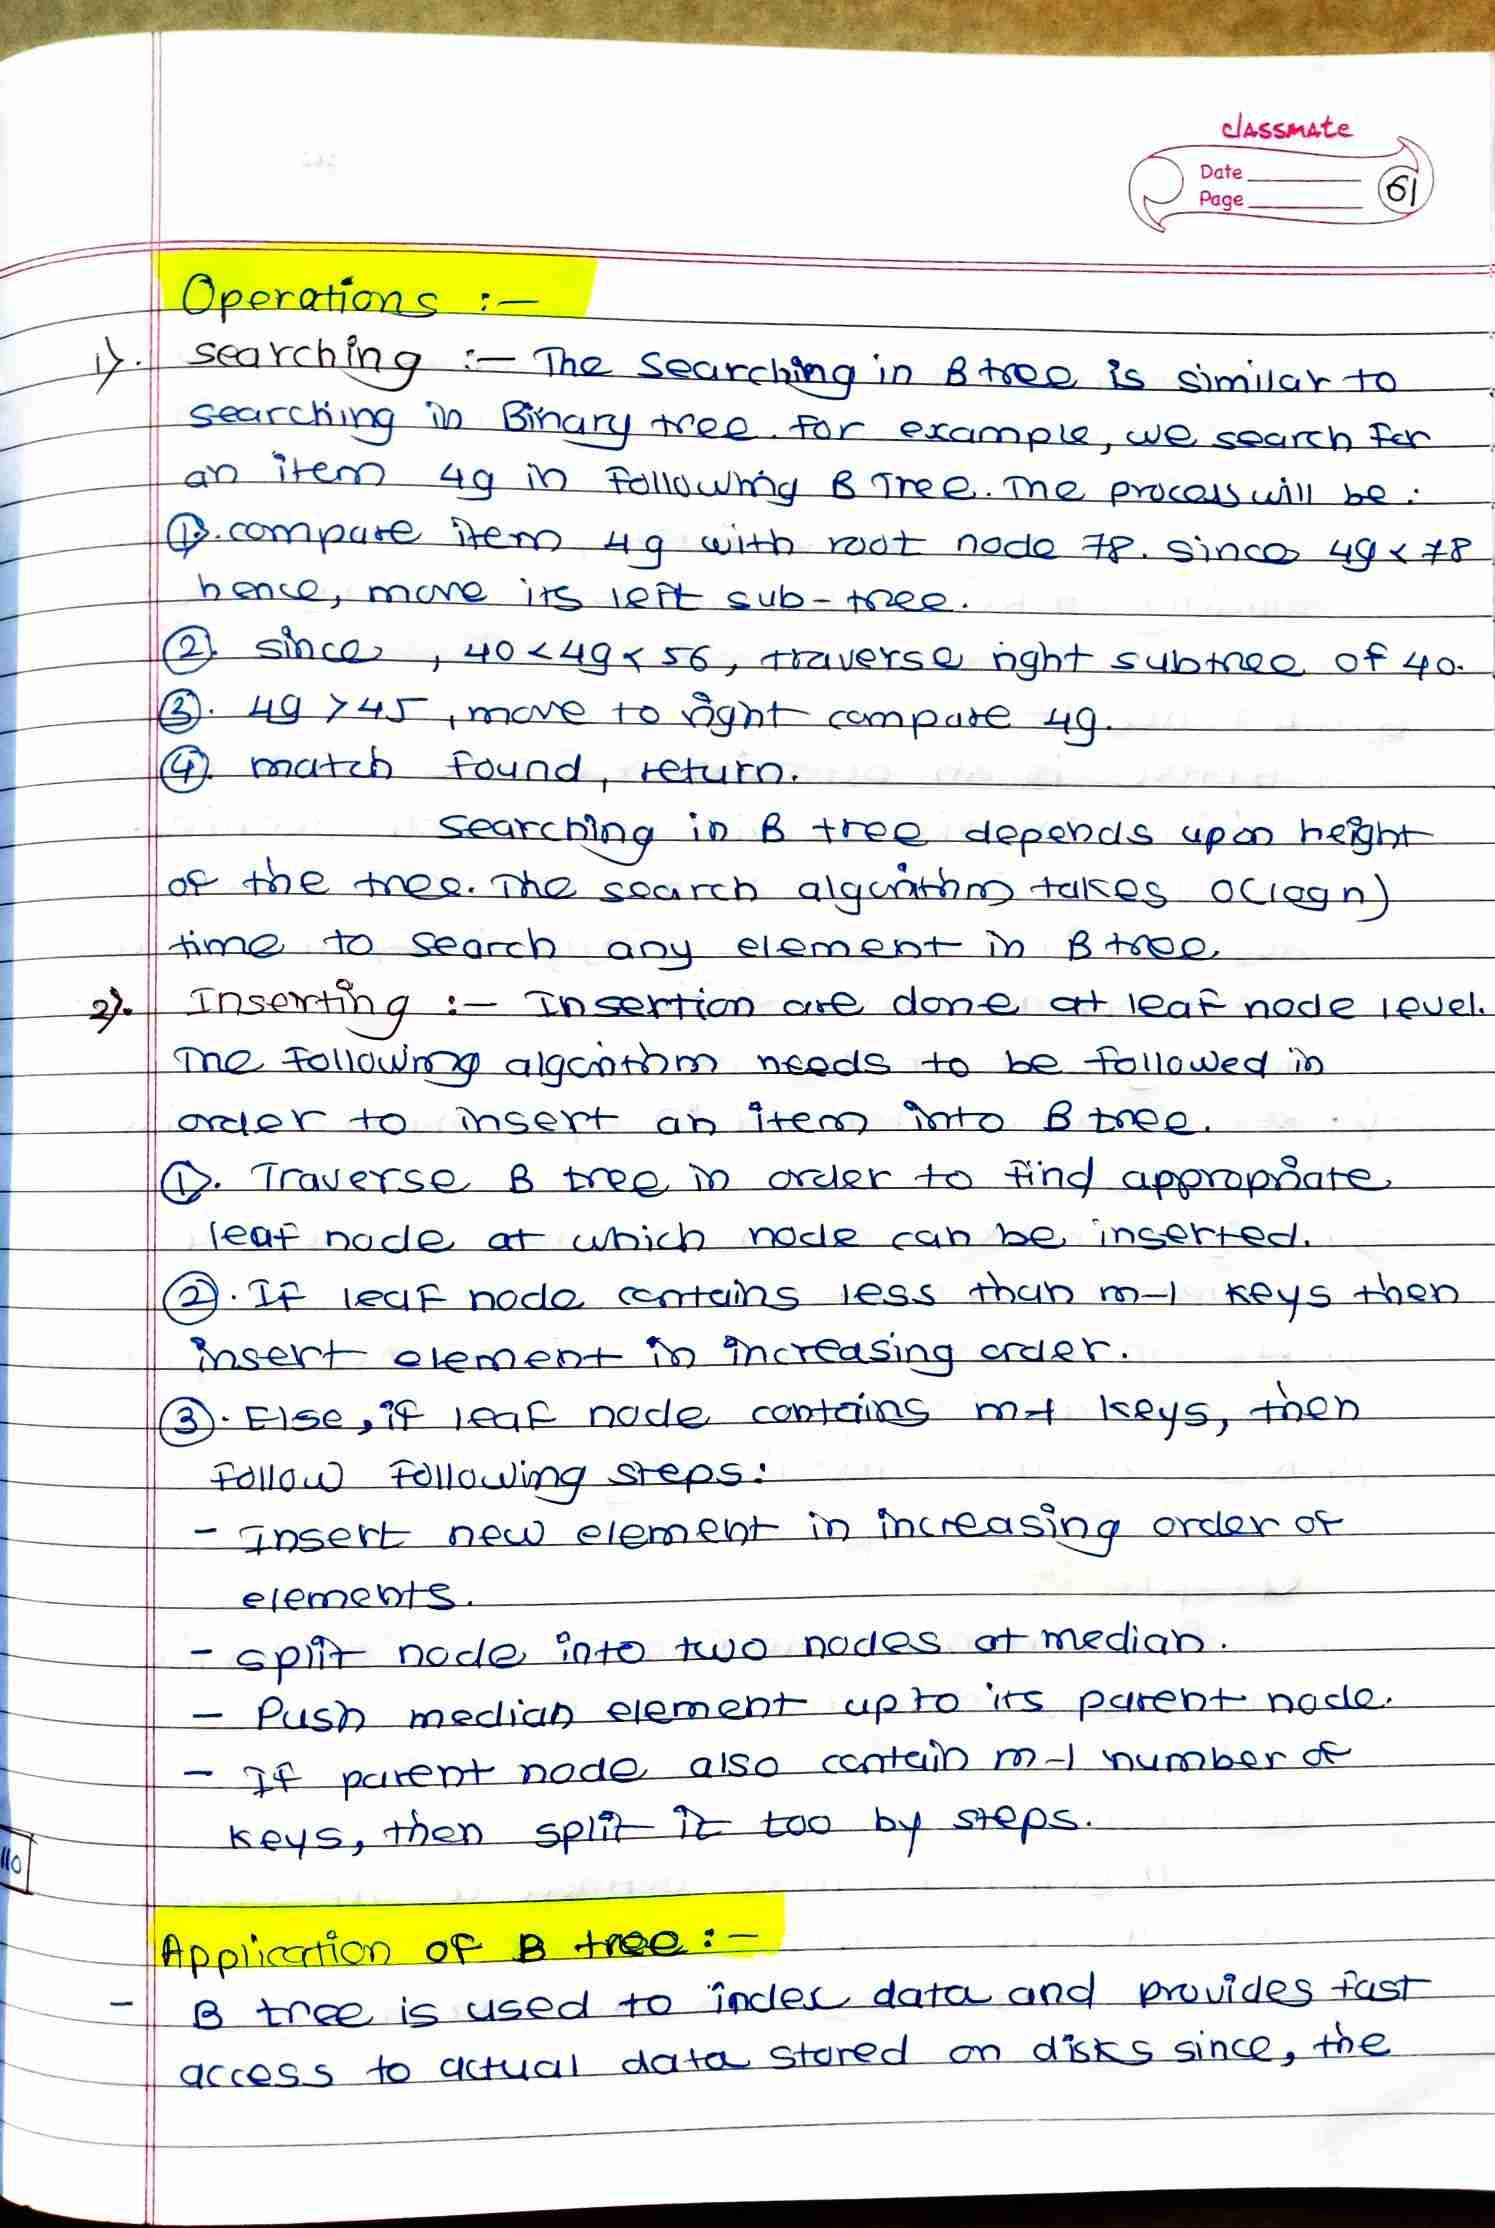 classmate
Date
Page
61
Operations :-
1). searching :- The searching in B tree is similar to
searching in Binary tree. for example, we search for
an item 49 in following B Tree. The process will be :
①. compare item 49 with root node 78. since 49 < 78
hence, move its left sub-tree.
②. since, 40 < 49 < 56, traverse right subtree of 40.
③. 49 > 45, move to right compare 49.
④. match found, return.
searching in B tree depends upon height
of the tree. The search algorithm takes O(logn)
time to search any element in B tree.
2). Inserting :- Insertion are done at leaf node level.
The following algorithm needs to be followed in
order to insert an item into B tree.
①. Traverse B tree in order to find appropriate
leaf node at which node can be inserted.
②. If leaf node contains less than m-1 keys then
insert element in increasing order.
③. Else, if leaf node contains m-1 keys, then
follow following steps:
- Insert new element in increasing order of
elements.
- split node into two nodes at median.
- Push median element upto its parent node.
- If parent node also contain m-1 number of
keys, then split it too by steps.
Application of B tree :-
- B tree is used to index data and provides fast
access to actual data stored on disks since, the